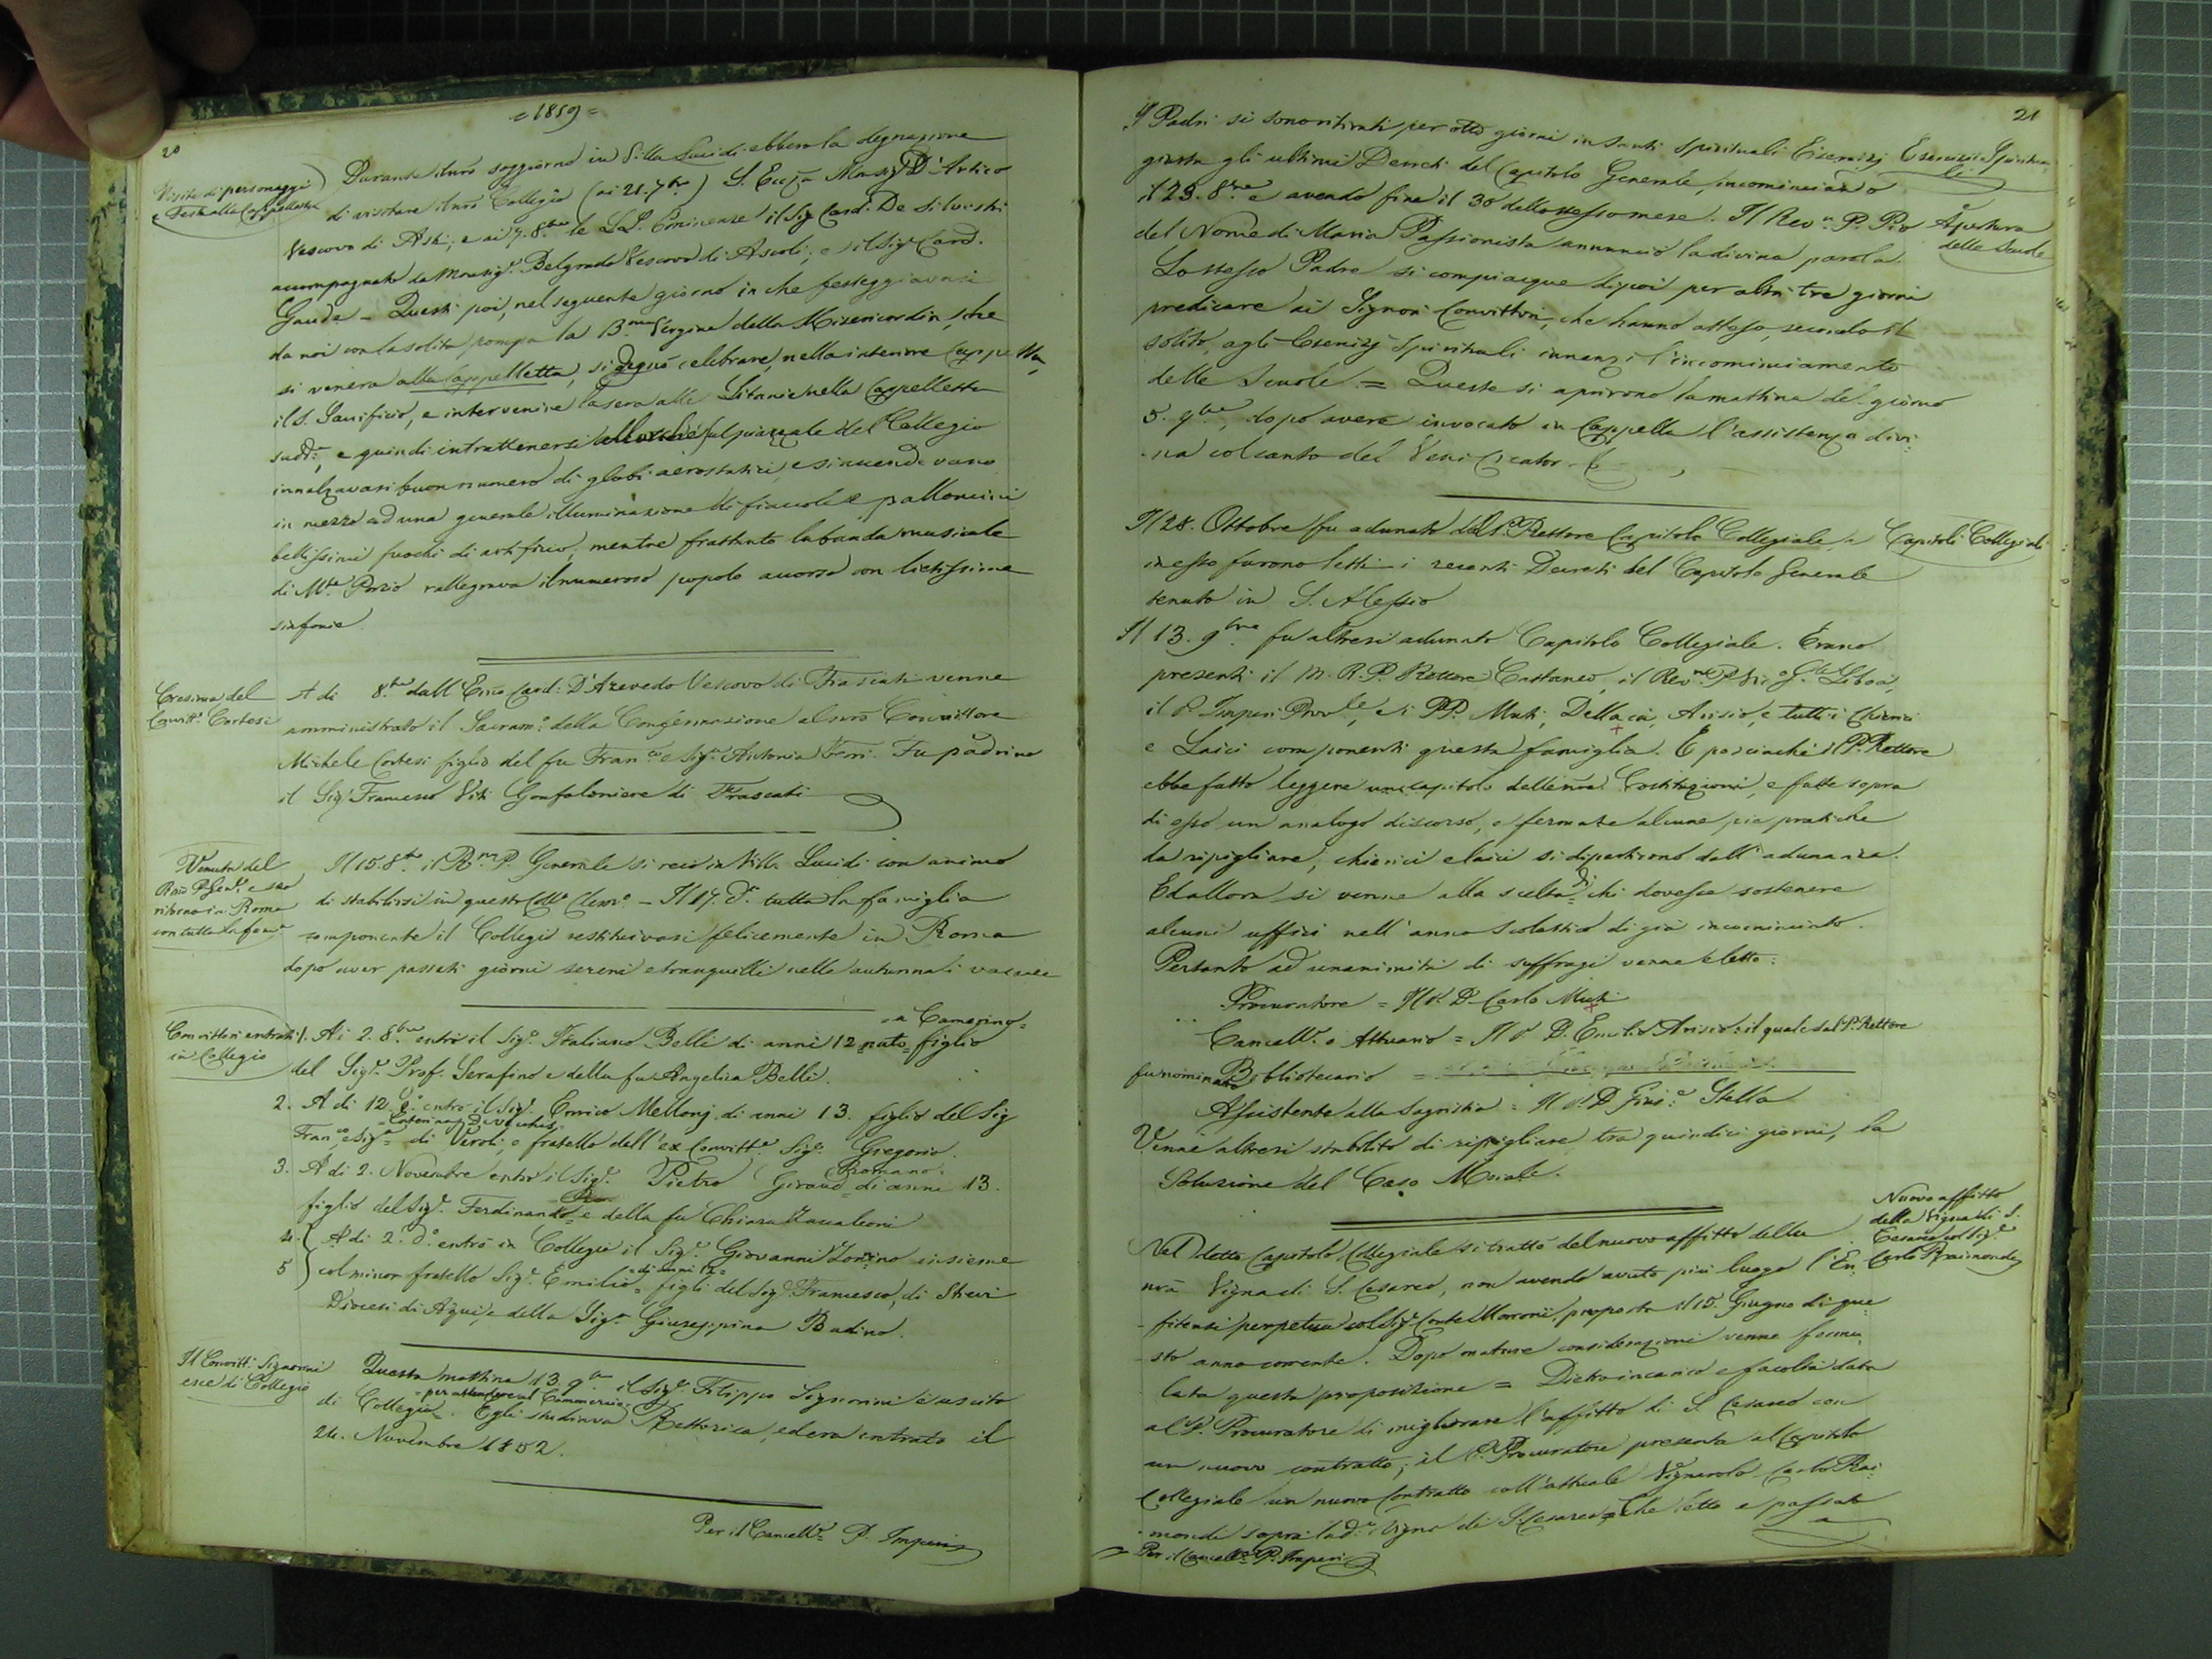 20
= 1859 =
Visite di personaggi
e Festa alla Cappelletta
Durante il nrõ soggiorno in Villa Lucidi ebbero la degnazione
di visitare il nrõ Collegio (ai 21. 7bre) S. Ecc.za Monsig.r D'Artico
Vescovo di Asti; e ai 7. 8.bre le LL. Eminenze il Sig. Card. De Silvestri
accompagnato da Monsig.r Belgrado Vescovo di Ascoli; e il Sig.r Card.
Gaude - Questi poi, nel seguente giorno in che festeggiavasi
da noi con la solita pompa la B.ma Vergine della Misericordia, che
si venera alla Cappelletta, si degnò celebrare, nella interiore Cappella,
il S. Sacrificio, e intervenire la sera alle Litanie nella Cappelletta
sudd.a, e quindi intrattenersi allorchè sul piazzale del Collegio
innalzavasi buon numero di globi aerostatici, e si accendevano
in mezzo ad una generale illuminazione di fiaccole e palloncini
bellissimi fuochi di artificio, mentre frattanto la banda musicale
di M.te Porzio rallegrava il numeroso popolo accorso con lietissime
sinfonie.
Cresima del
Convitt.e Cortesi
A di 8.bre dall'Emõ Card. D'Azevedo Vescovo di Frascati venne
amministrato il Sacram.o della Confermazione al nrõ Convittore
Michele Cortesi figlio del fu Fran.co e Sig.ra Antonia Ferri. Fu padrino
il Sig.r Francesco Viti Gonfaloniere di Frascati
Venuta del
Rmõ P. Gen.le e suo
ritorno in Roma
con tutta la fam.a
Il 15. 8.bre il R.mo P. Generale si recò in Villa Lucidi con animo
di stabilirsi in questo Coll.o Clem.o - Il 17. d.o tutta la famiglia
componente il Collegio restituivasi felicemente in Roma
dopo aver passati giorni sereni e tranquilli nelle autunnali vacanze
Convittori entrati
in Collegio
= a Camerino =
1. Ai 2. 8.bre entrò il Sig.r Italiano Belli di anni 12 nato = figlio
del Sig.r Prof. Serafino e della fu Angelica Belli.
2. A di 12. d.o entrò il Sig.r Enrico Mellonj di anni 13. figlio del Sig
= Caterina =
Fran.co e Sig.a = di Veroli, e fratello dell'ex Convitt.e Sig.r Gregorio.
Romano =
3. A di 2. Novembre entrò il Sig.r Pietro Giraud = di anni 13.
figlio del Sig.r Ferdinando = e della fu Chiara
4. A di 2. d.o entrò in Collegio il Sig.r Giovanni insieme
= di anni 12 =
5 col minor fratello Sig.r Emilio = figli del Sig.r Francesco, di Strevi
Diocesi di Aqui, e della Sig.ra Giuseppina Badino.
Il Convitt. Signorini
esce di Collegio
Questa mattina 13. 9.bre il Sig.r Filippo Signorini è uscito
= per attendere al Commercio =
di Collegio =. Egli studiava Rettorica, ed era entrato il
24. Novembre 1852.
Per il Cancell.re P. Imperi
21
I Padri si sono ritirati per otto giorni in santi spirituali Esercizj
Esercizii Spirituali
giusta gli ultimi Decreti del Capitolo Generale, incominciando
il 23. 8.bre e avendo fine il 30 dello stesso mese. Il Rev.o P. Pio
Apertura
delle Scuole
del Nome di Maria Passionista annunciò la divina parola.
Lo stesso Padre si compiacque dipoi per altri tre giorni
predicare ai Signori Convittori, che hanno atteso, secondo il
solito, agli Esercizj Spirituali innanzi l'incominciamento
delle Scuole. = Queste si aprirono la mattina del giorno
5. 9.bre, dopo avere invocato in Cappella l'assistenza divi:
na col canto del Veni Creator
Il 28. Ottobre fu adunato dal P. Rettore Capitolo Collegiale, e
Capitoli Collegiali
in esso furono letti i recenti Decreti del Capitolo Generale
tenuto in S. Alessio
Il 13. 9.bre fu altresì adunato Capitolo Collegiale. Erano
presenti il M. R. P. Rettore Cattaneo, il Rev.mo P. Vic.o G.le Libois,
il P. Imperi Prov.le, e i PP. Muti, Dellacà, Arisio, e tutti i Chierici
e Laici componenti questa famiglia. E posciachè il P. Rettore
ebbe fatto leggere un capitolo delle nrẽ Costituzioni, e fatto sopra
di esso un analogo discorso, e fermate alcune pie pratiche
da ripigliare, chierici e laici si dipartirono dall'adunanza.
Ed allora si venne alla scelta di chi dovesse sostenere
alcuni uffici nell'anno scolastico di già incominciato.
Pertanto ad unanimità di suffragi venne eletto:
Procuratore = Il P. D. Carlo Muti
Cancell.e o Attuario = Il P. D. Emilio Arisio: il quale dal P. Rettore
fu nominato Bibliotecario =
Assistente alla Sagristia = Il P. D. Gius.e Stella
Venne altresì stabilito di ripigliare, tra quindici giorni, la
Soluzione del Caso Morale.
Nuovo affitto
della Vigna di S.
Cesareo col Sig.r
Carlo Raimondi
Nel detto Capitolo Collegiale si trattò del nuovo affitto della
nrã Vigna di S. Cesareo, non avendo avuto più luogo l'En:
fiteusi perpetua col Sig.r Conte Moroni, proposta il 15. Giugno di que
sto anno corrente. Dopo mature considerazioni venne formu
lata questa proposizione = Dietro incarico e facoltà data
al P. Procuratore di migliorare l'affitto di S. Cesareo con
un nuovo contratto; il P. Procuratore presenta al Capitolo
Collegiale un nuovo Contratto coll'attuale Vignarolo Carlo Rai:
mondi sopra la d.a Vigna di S. Cesareo = Che letto e passato
Per il Cancell.re P. Imperi